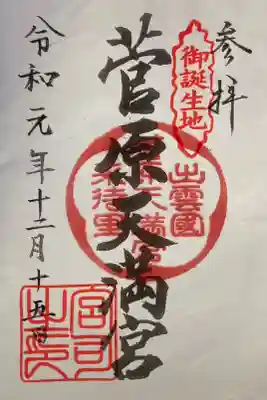 参拝
御誕生地
菅原天満宮
出雲國
菅原天満宮
令和元年十二月十五日
宮司之印